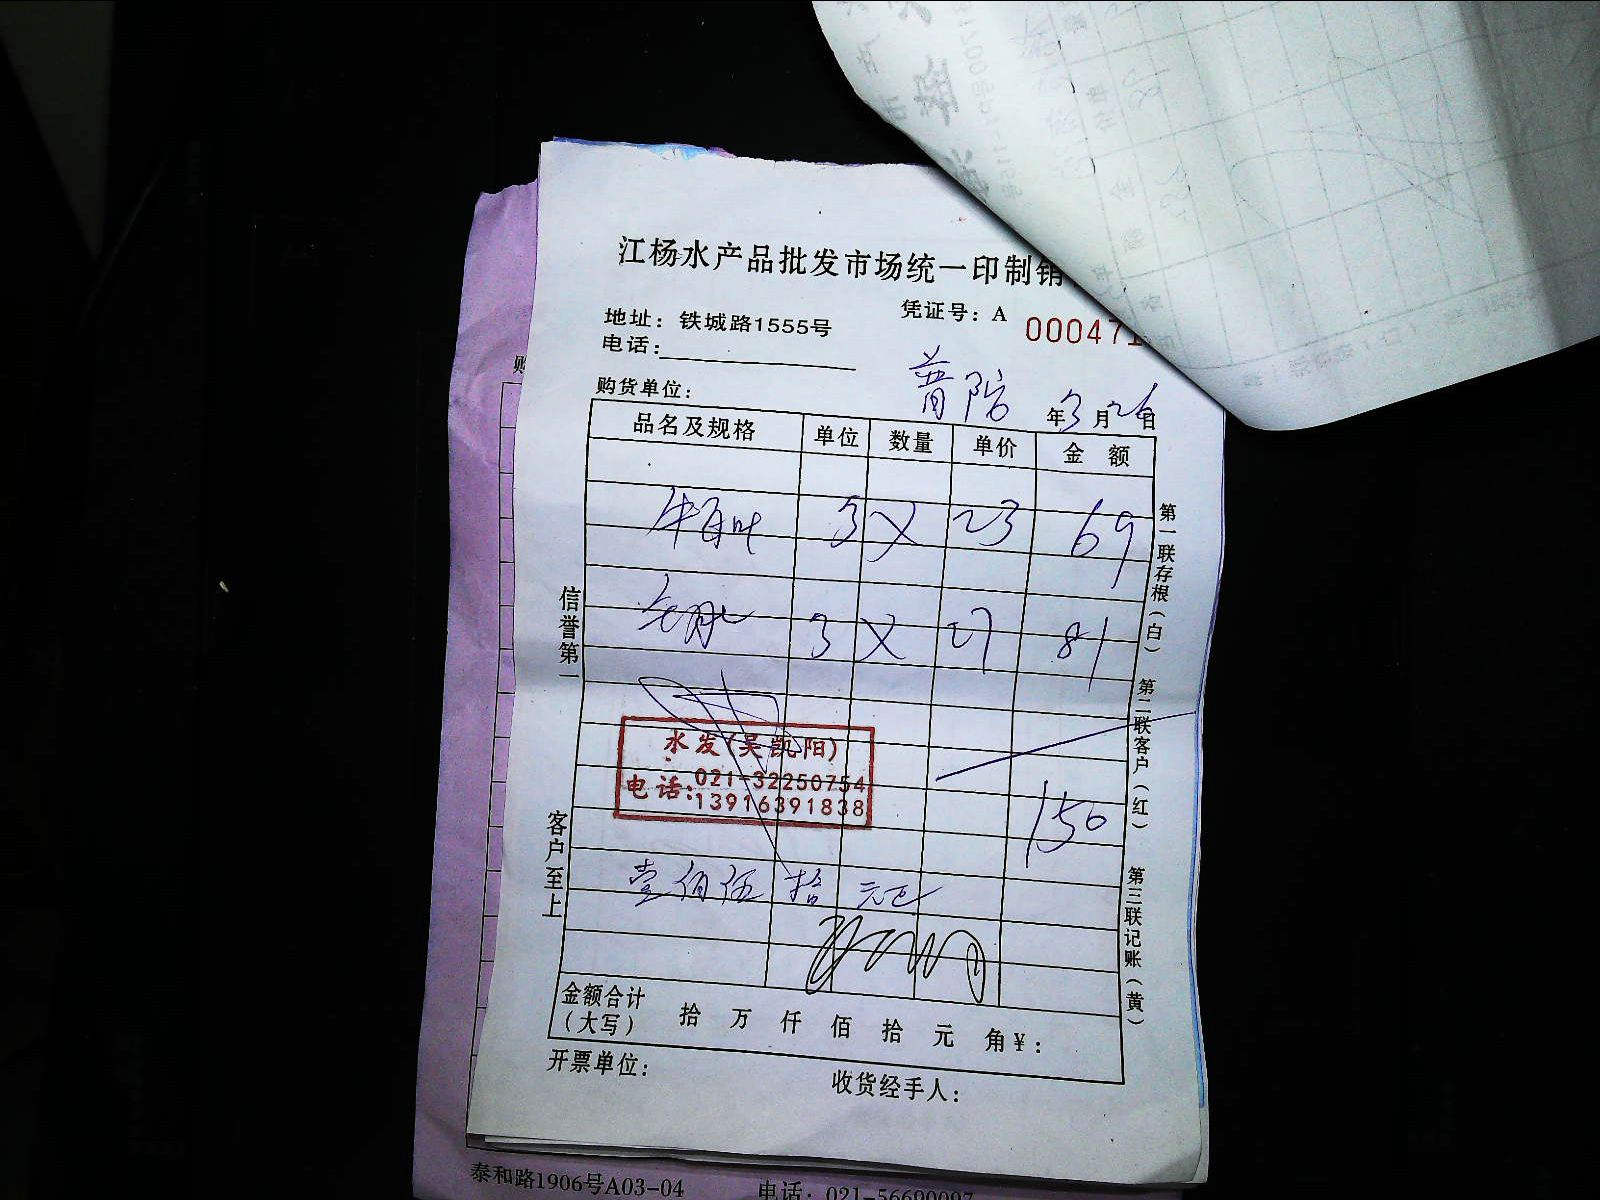 江杨水产品批发市场统一印制销
凭证号：A 000471
地址：铁城路1555号
电话：
购货单位： 普陀 年3月26日
品名及规格 单位 数量 单价 金 额
牛百叶 3 X 23 69
3 X 27 81
水发(吴凯阳)
电话：021-32250754
13916391838
150
壹佰伍拾元正
金额合计（大写） 拾 万 仟 佰 拾 元 角￥：
开票单位： 收货经手人：
信誉第一
客户至上
第一联存根（白）
第二联客户（红）
第三联记账（黄）
购
泰和路1906号A03-04 电话：021-56690097